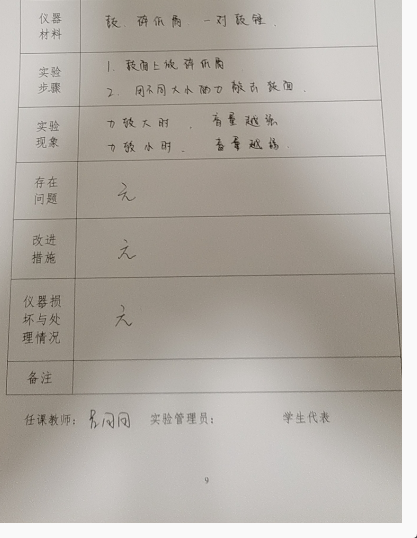 仪器
材料
鼓、碎纸屑、一对鼓锤.
实验
步骤
1. 鼓面上放碎纸屑
2. 用不同大小的力敲击鼓面.
实验
现象
力较大时, 音量越强
力较小时, 音量越弱.
存在
问题
无
改进
措施
无
仪器损
坏与处
理情况
无
备注
任课教师: 实验管理员: 学生代表
9